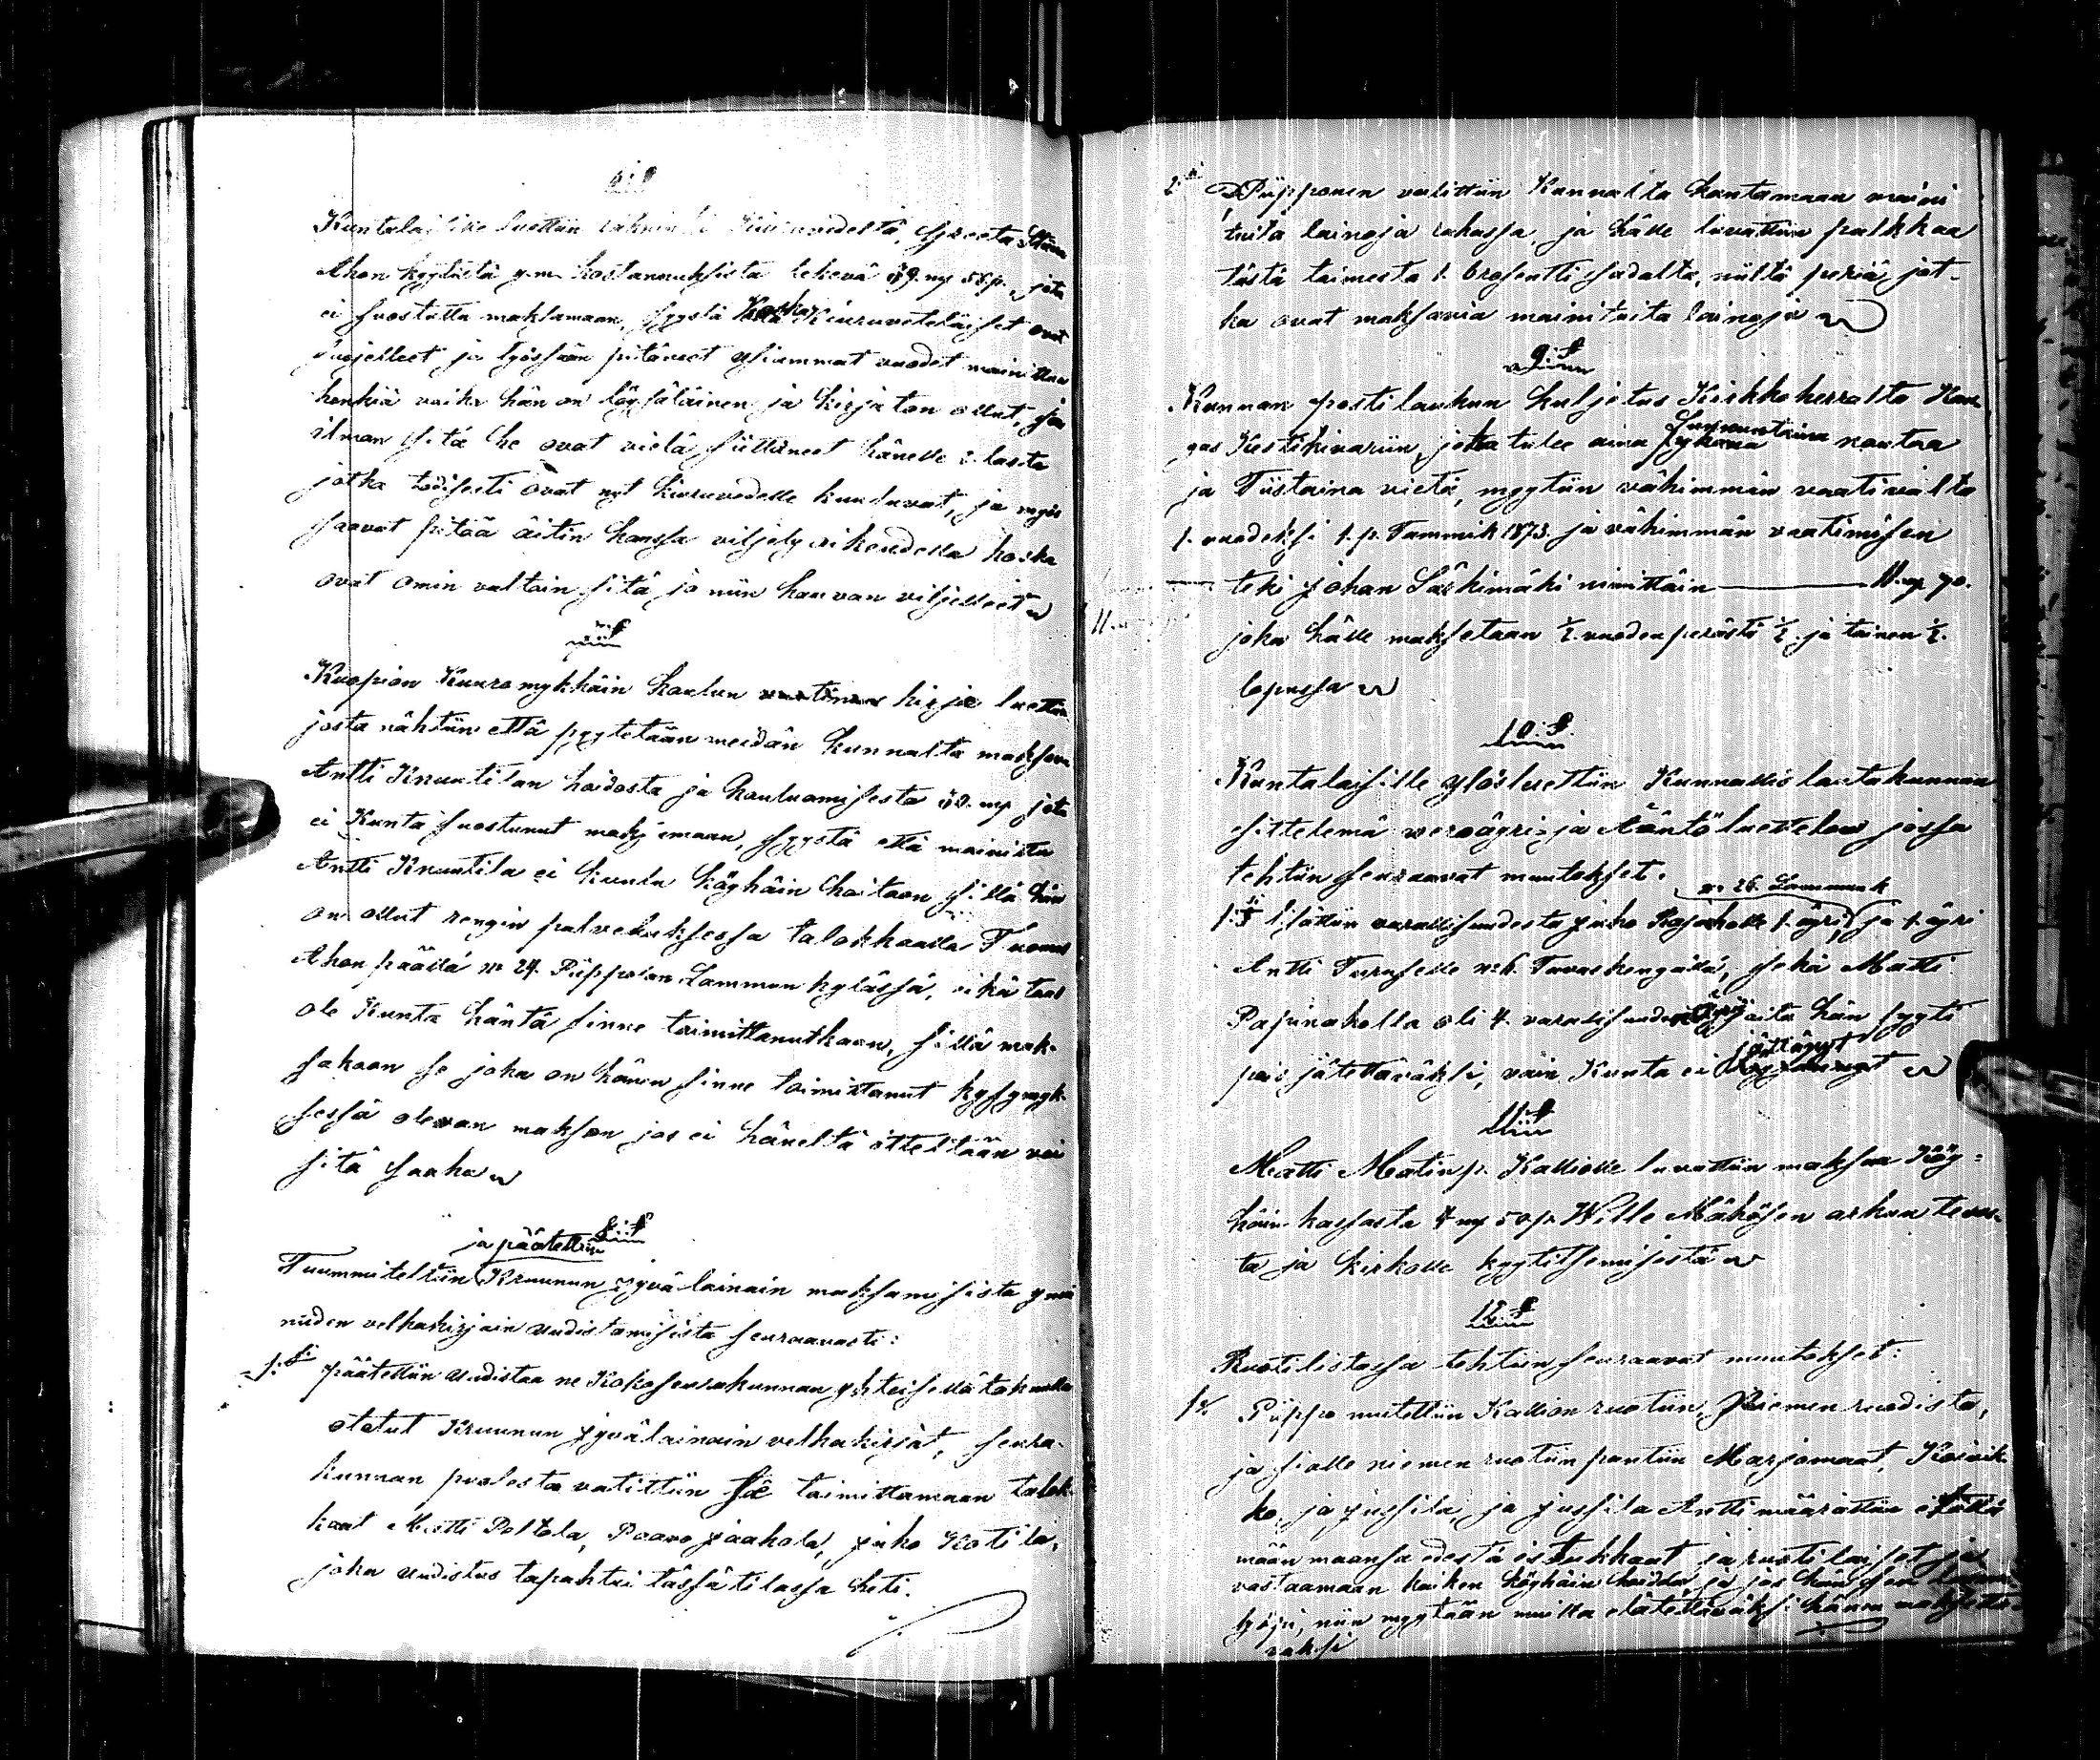 6:§
Kuntalaisille luettiin Kiuruvedeltä, Greeta Stiina
Ahon kyydistä y.m. kostannuksista tekevä 39. mp 55 p. jota
ei suostuttu maksamaan, syystä Koska Kiuruveteläiset ovat
suojelleet ja työssään pitäneet usiammat vuodet mainittua
henkiä vaikk hän on löysäläinen ja kirjaton ollut, ja
ilman sitä he ovat vielä siittäneet hänelle 2 lasta
jotka todisesti ovat nyt kiuruvedelle kuuluvat, ja myös
saavat pitää äitin kanssa viljelys oikeudella koska
ovat omin valtain sitä jo niin kauvan viljelleet
7:§
Kuopion Kuuromykkäin koulun kirja luettiin
josta nähtiin että pyytetään meidän kunnalta maksua
Antti Kruutilan hoidosta ja kouluamisesta 30. mp jota
ei Kunta suostunut maksamaan, syystä että mainittu
Antti Kruutila ei kuulu köyhäin hoitoon sillä hän
on ollut rengin palveluksessa talokkaalla Tuomas
Ahon päällä no 24. Piippolan Lammun kylässä, eikä taas
ole Kunta häntä sinne toimittanutkaan, sillä mak-
sakoon se joka on hänen sinne toimittanut kysymyk-
sessä olevan makson jos ei häneltä itteltään voi
sitä saaha
8:§
ja päätettiin
Tuummiteltiin Kruunun jyvä lainain maksamisista ynnä
niiden velkakirjain uudistamisista seuraavasti:
1:ksi päätettiin uudistaa ne Kokoseurakunnan yhteisellä takuulla
otetut Kruunun jyvälainain velkakirjat, seura-
kunnan puolesta valittiin sitä toimittamaan talok-
kaat Matti Peltola, Paavo Jaakola, Juho Kotila,
joka uudistus tapahtui tässä tilassa heti.
2:ksi D. Piipponen valittiin Kunnalta kantamaan maini
tuita lainoja rahassa, ja hälle luvattiin palkkaa
tästä toimesta 1. Prosentti sadalta, niiltä periä jot-
ka ovat maksavia mainituita lainoja
9:§
Kunnan postilaukun kuljetus Kirkkoherralta Kan
gas Kestikivariin, jotka tulee aina Sunnuntaina noutaa
ja Tiistaina vietä, myytiin vähimmän vaativalta
1. vuodeksi 1. p. Tammik 1873. ja vähimmän vaatimisen
teki Johan Särkimäki nimittäin 11. mp 90.
joka hälle maksetaan 1/2. vuoden perästi 1/2. ja toinen 1/2.
lopussa
10:§
Kuntalaisille ylösluettiin Kunnallislautakunnan
sittelemä veroäyri- ja Ääntöluettelon jossa
tehtiin seuraavat muutokset.
no 26. Lammunk
1:ksi lisättiin varallisuudesta Juho Rajakolle 1. äyri, ja 1. äyri
Antti Turuselle no 6. Tavaskengällä, sekä Matti
Papinaholla oli 4. varallisuudesta äyriä joita hän pyyti
pois jätettäväksi, vain Kunta ei jättänyt
11:§
Matti Matinp. Kalliolle luvattiin maksaa Köy-
häin kassasta 4 mp 50 p. Wille Mähösen arkun teos-
ta ja kirkolle kyytitsemisestä
12:§
Ruotilistassa tehtiin seuraavat muutokset:
1:ksi Piippo muutettiin Kallion ruotiin Niemen ruodista,
ja sialle niemen ruotiin pantiin Marjomaat, Koivik-
ko, ja Jussila, ja Jussila Antti määrättiin
mään maansa edestä ja ruotilaiset ja
vastaamaan kaiken köyhäin hoidon, ja jos hän sen
työji, niin myytään muilla elätettäväksi hänen makset-
tavaksi